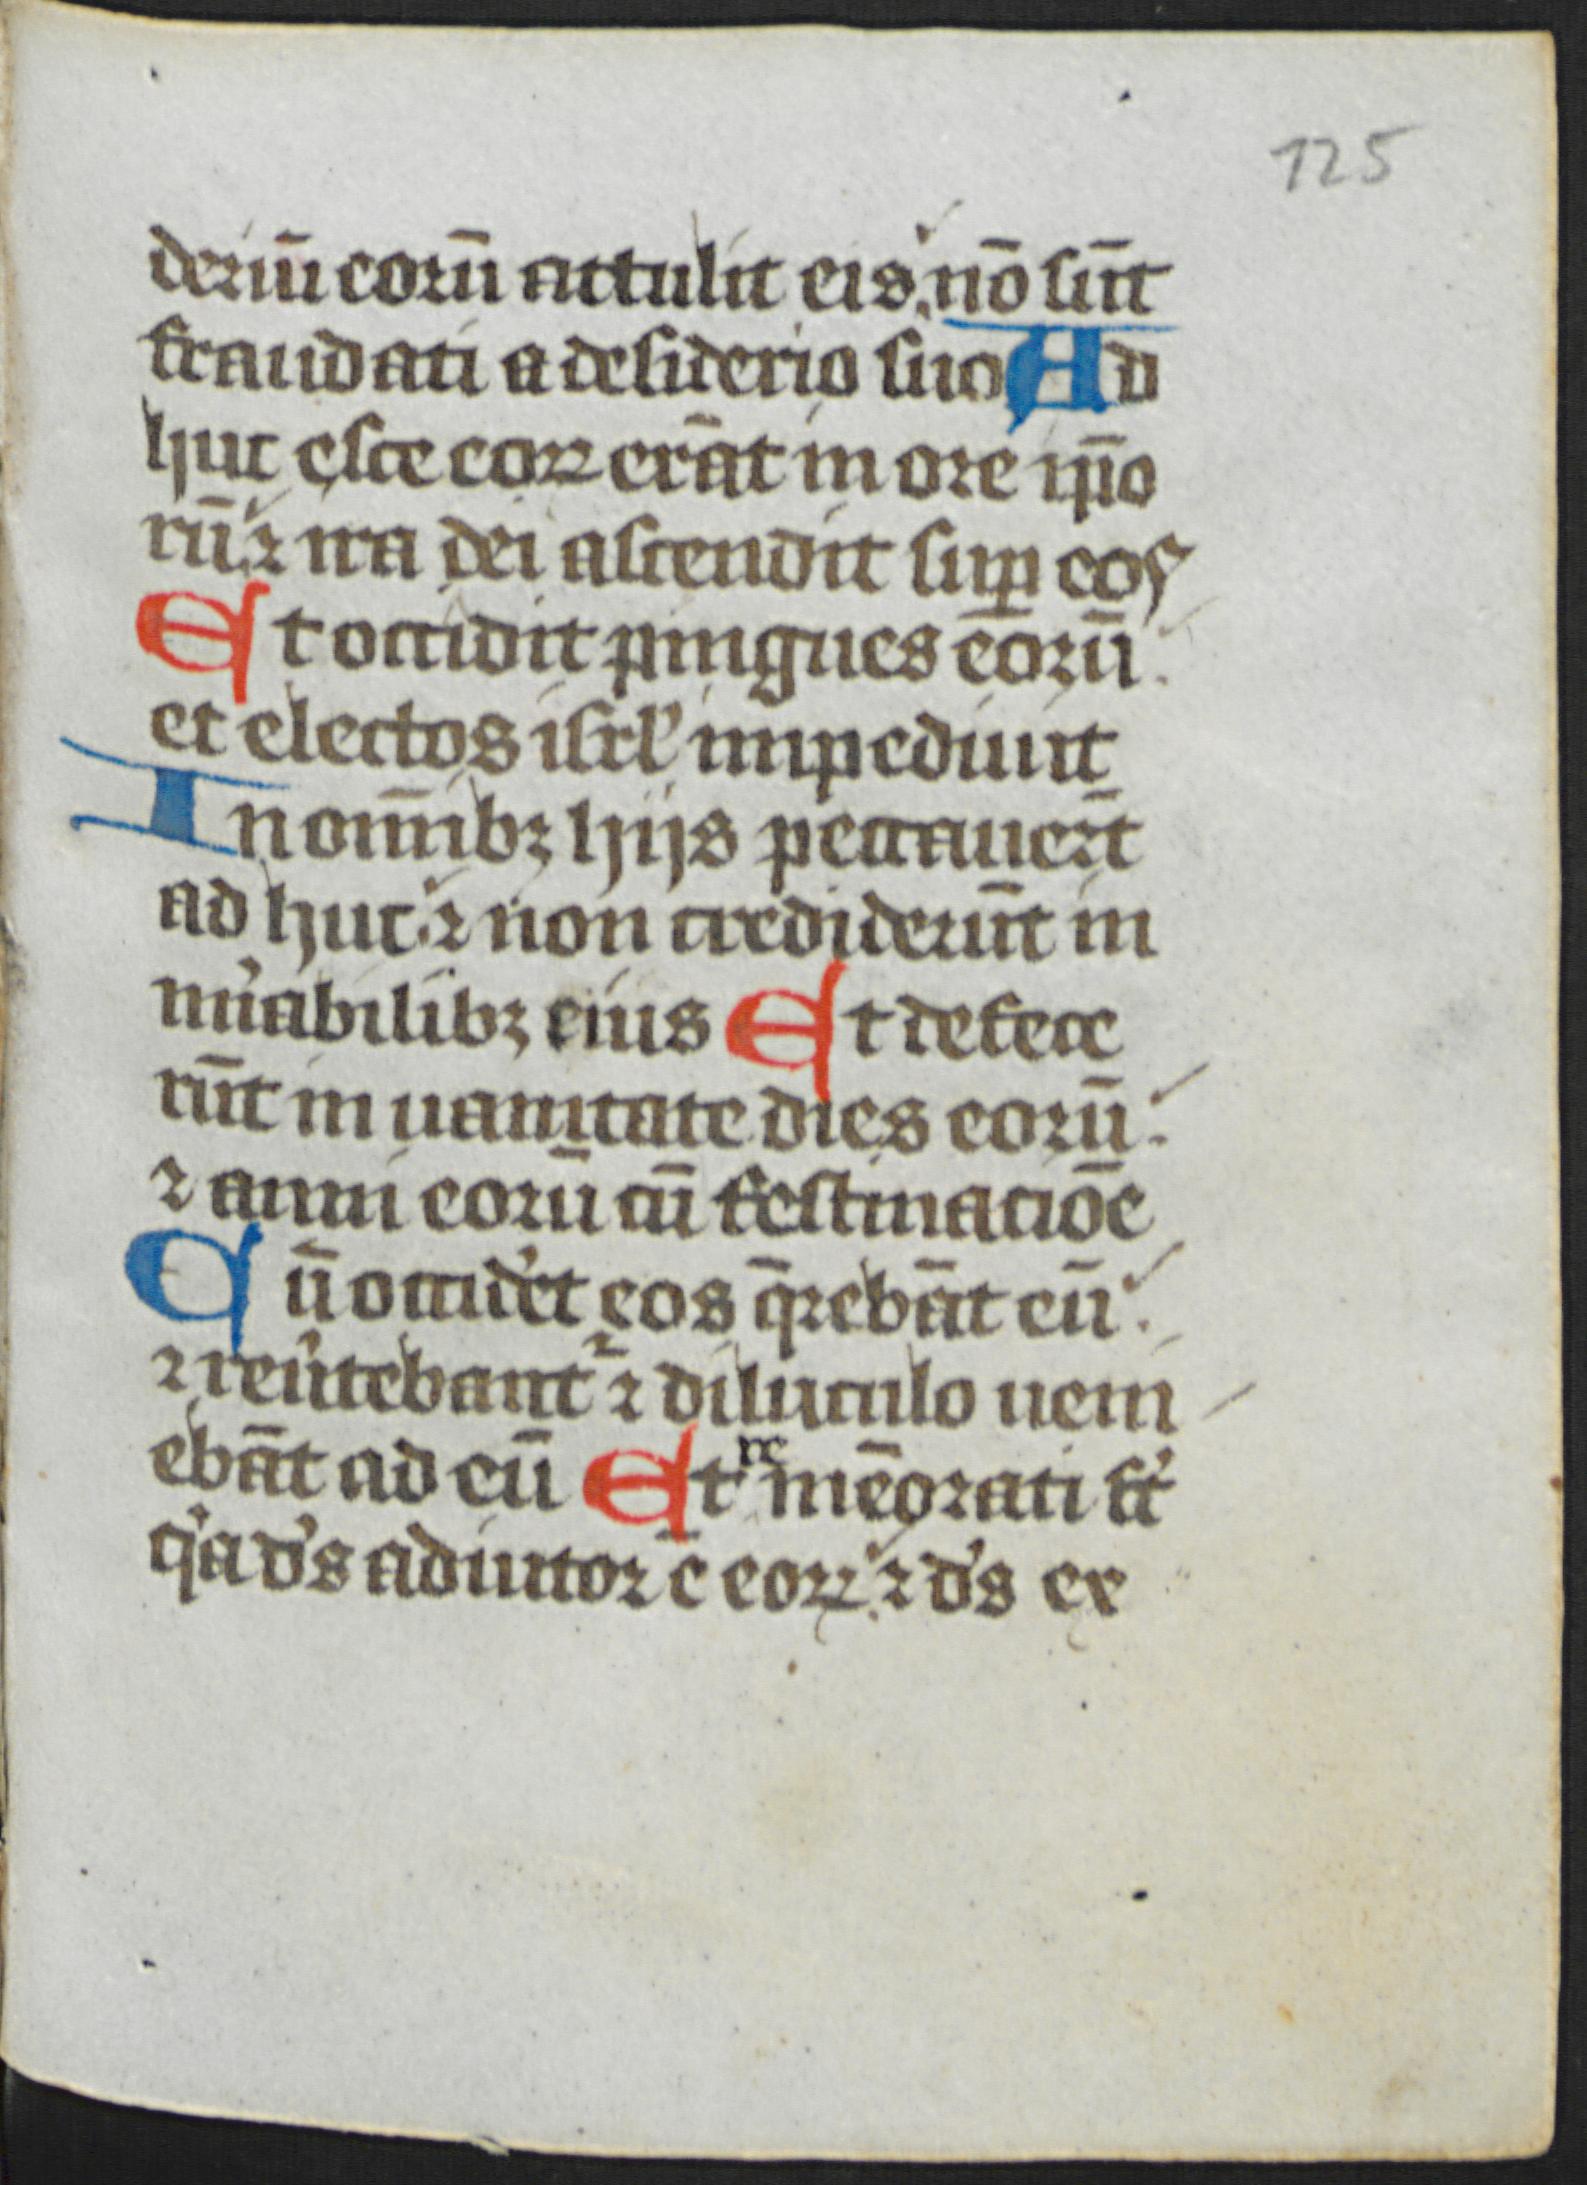 125
deriū eorū attulit eis. nō sūt
fraudati a desiderio suo Ad
huc esce eorꝝ erāt in ore ip̄o
rū. ⁊ ira dei ascendit sup̄ eos
Et occidit pingues eorū.
et electos isrl' impediuit
In om̄ibꝫ hijs peccauer̄t
ad huc. ⁊ non crediderūt in
mi'abilibꝫ eius Et defece
rūt in uanitate dies eorū.
⁊ anni eorū cū festinaciōe
Cū occid'et eos q̄rebāt eū.
⁊ reu'tebantᷣ ⁊ diluculo ueni
ebāt ad eū Et re mēorati st'
q'a d's adiutor ē eorꝝ. ⁊ d's ex